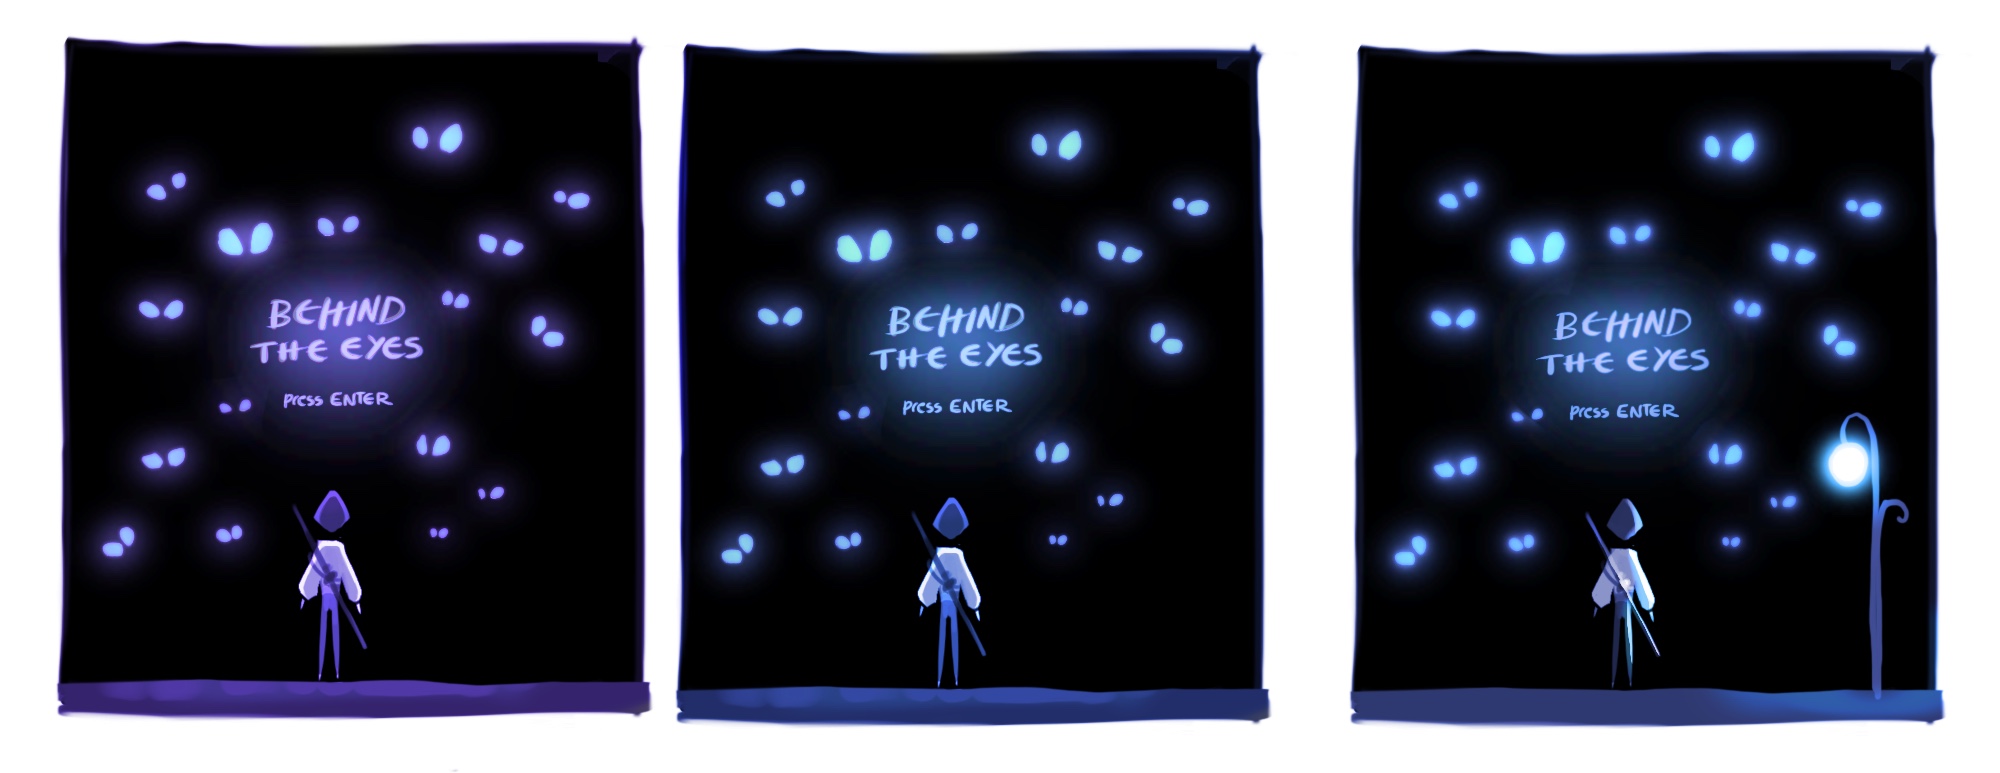 BEHIND
THE EYES
press ENTER
BEHIND
THE EYES
press ENTER
BEHIND
THE EYES
press ENTER